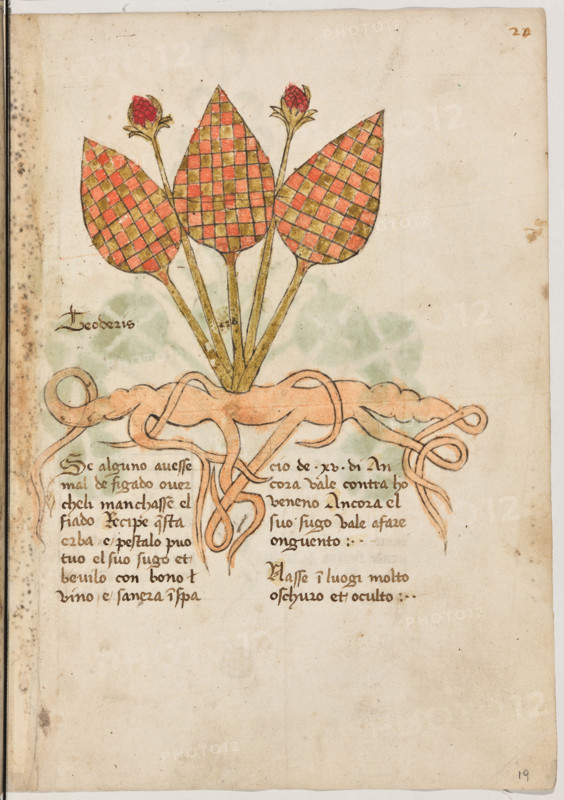 24
Leoderis
Se alguno auesse
mal de figado ouer
cheli manchasse el
fiado Recipe q̃sta
erba e pestalo puo
tuo el suo sugo et
beuilo con bono t
vino e sanera ĩ spa
cio de · xv · di An
cora vale contra ho
veneno Ancora el
suo sugo vale afare
onguento :· ·
Nasse ĩ luogi molto
oschuro et oculto :· ·
19
PHOTO12